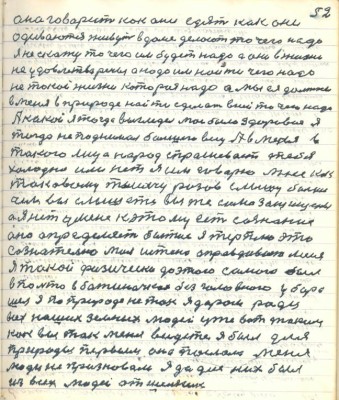 52
она говорит как они едят как они
одеваются живут в доме делают то чего надо
я не скажу то чего им будет надо а они в жизни
не удовлетворены а надо им найти чего надо
не такой жизни которая надо а мы ея должны
в меня в природе найти сделает вам то чего надо
А какой я тогда выглядел мое было здоровая я
тогда не поднимал большего вещ А в мерзя в
такого лица народ спрашивает тебя
холодно или нет я им говорю мне как
таковому
чем вы слышите вы же само защищены
а я нет у меня к этому есть сознание
оно определяет бытие я терплю это
сознательно мая истено оправдывает меня
я такой физически до этого самого был
в пальто в ботинках без головного убора
шел я по природе не так я даром ради
всех наших земных людей уже вот таким
как вы так меня видите я был для
природы первым она послала меня
люди не признавали я да для них был
из всех людей отшельник